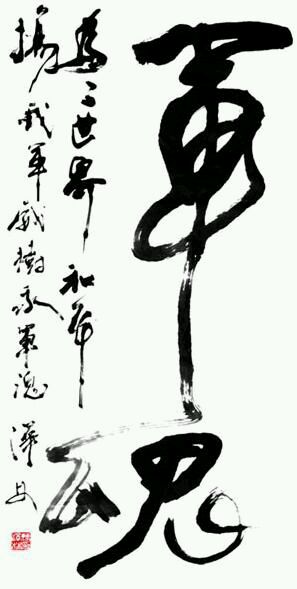 軍魂
為了世界和平
揚我軍威樹我軍魂